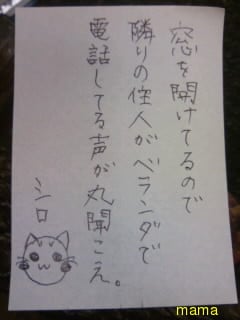 窓を開けてるので
隣りの住人がベランダで
電話してる声が丸聞こえ。
シロ
mama